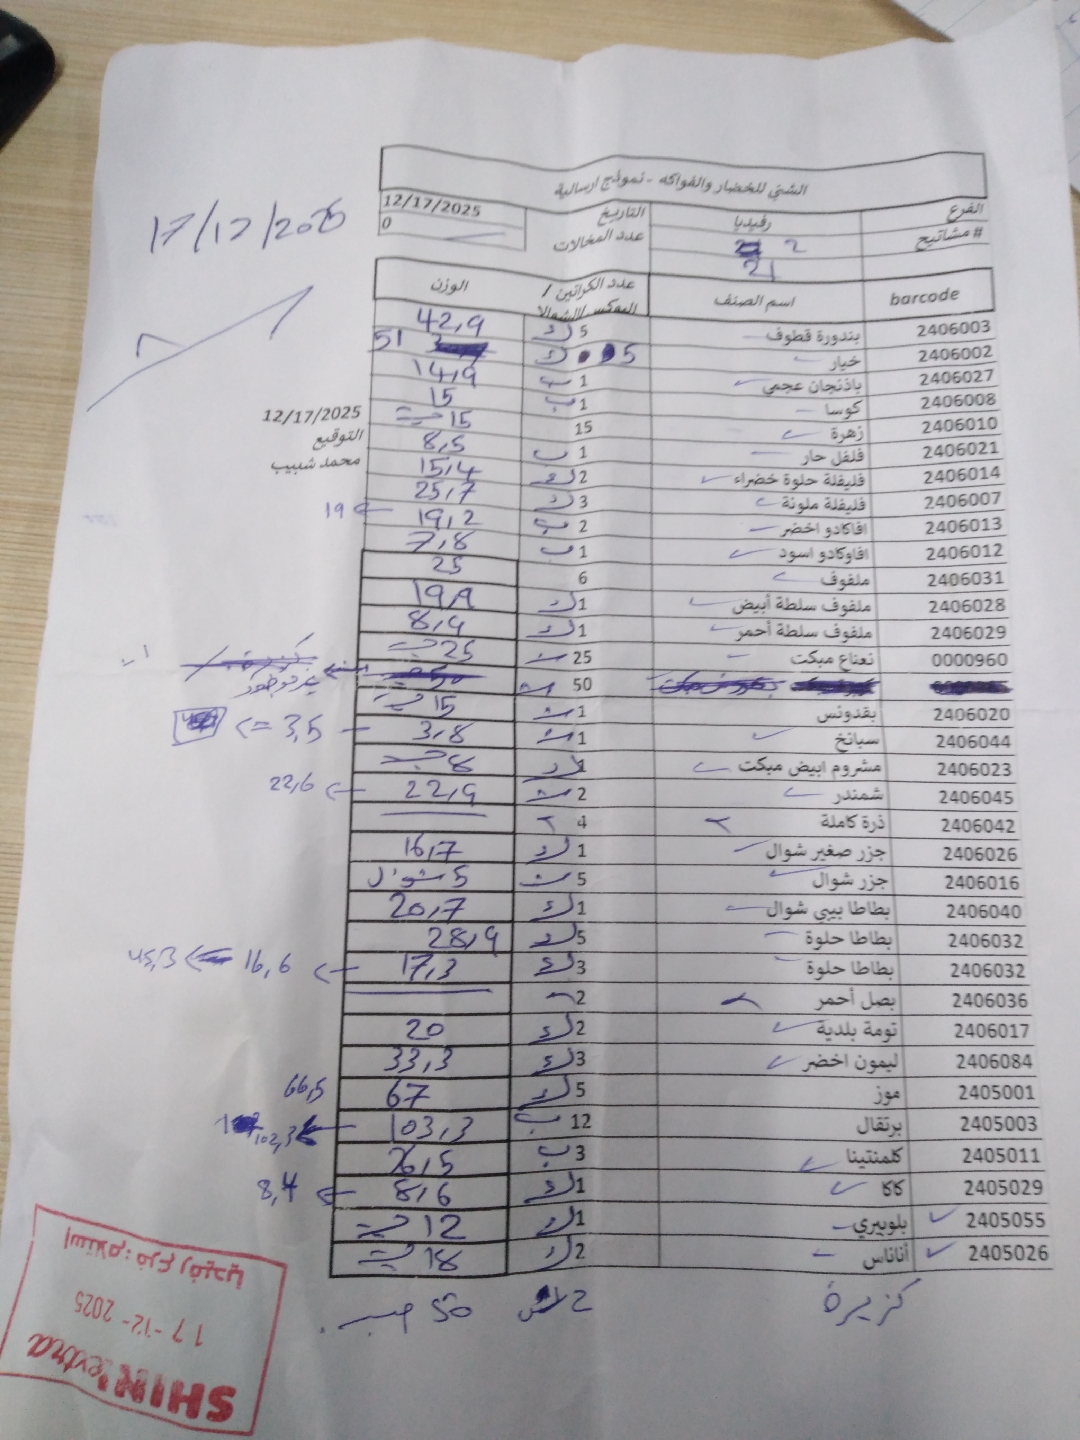 الشني للخضار والفواكه - نموذج ارسالية
الفرع رفيديا التاريخ 12/17/2025
# مشاتيح 2 عدد المخالات 0
21
17/12/2025
barcode اسم الصنف عدد الكراتين / البوكس/الشوالا الوزن
2406003 بندورة قطوف 5 ك 42,9
2406002 خيار 5 ك 51
2406027 باذنجان عجمي 1 ب 14,9
2406008 كوسا 1 ب 15
2406010 زهرة 15 15 حبة
2406021 فلفل حار 1 ب 8,5
2406014 فليفلة حلوة خضراء 2 ك 15,4
2406007 فليفلة ملونة 3 ك 25,7
2406013 افاكادو اخضر 2 ب 19,2 19
2406012 افاوكادو اسود 1 ب 7,8
2406031 ملفوف 6 25
2406028 ملفوف سلطة أبيض 1 ك 19,9
2406029 ملفوف سلطة أحمر 1 ك 8,9
0000960 نعناع مبكت 25 25 حبة
50 غير موجود
2406020 بقدونس 1 15 حبة
2406044 سبانخ 1 3,8 3,5
2406023 مشروم ابيض مبكت 1 ك 8 حبة
2406045 شمندر 2 22,9 22,6
2406042 ذرة كاملة 4
2406026 جزر صغير شوال 1 ك 16,7
2406016 جزر شوال 5 ش 5 شوال
2406040 بطاطا بيبي شوال 1 ك 20,7
2406032 بطاطا حلوة 5 ك 28,9
2406032 بطاطا حلوة 3 ك 17,3 16,6 45,3
2406036 بصل أحمر 2
2406017 تومة بلدية 2 ك 20
2406084 ليمون اخضر 3 ك 33,3
2405001 موز 5 ك 67 66,5
2405003 برتقال 12 ب 103,3 102,3
2405011 كلمنتينا 3 ب 26,5
2405029 كاكا 1 ك 8,6 8,4
2405055 بلوبيري 1 ك 12 حبة
2405026 أناناس 2 ك 18 حبة
كزبرة 2 50 حبه
12/17/2025
التوقيع
محمد شبيب
استلام: فرع رفيديا
17-12-2025
SHINI extra